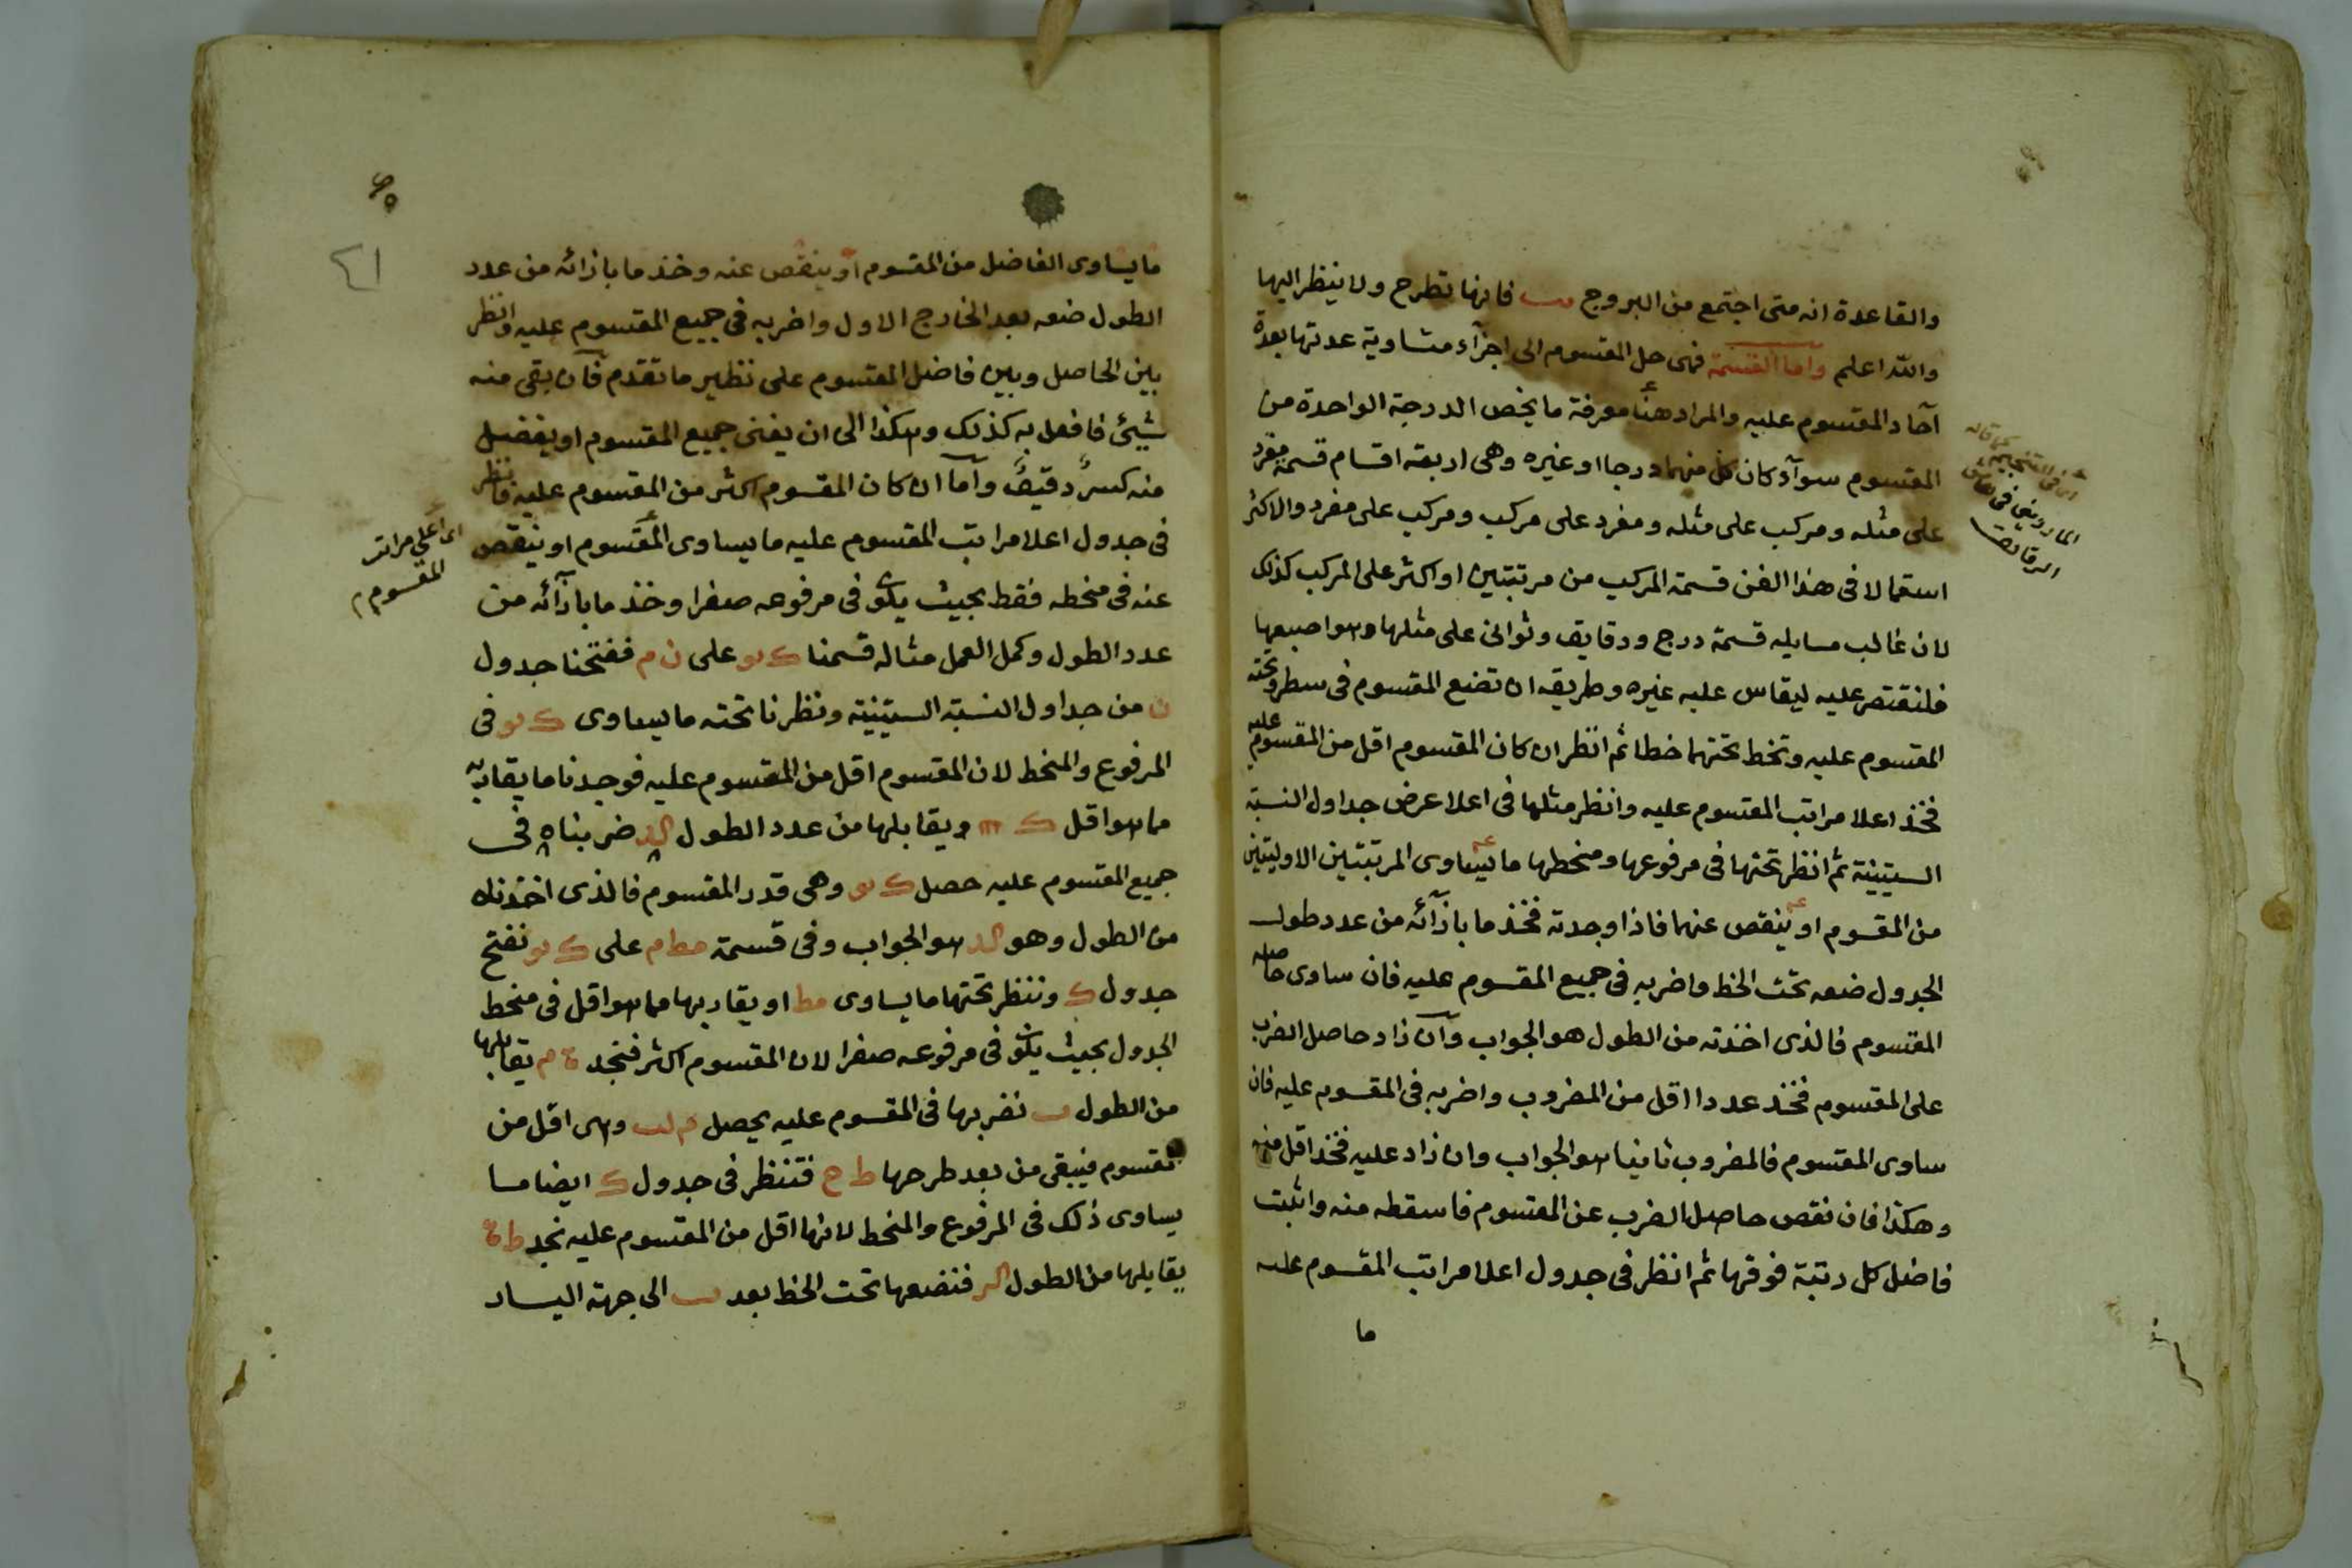 والقاعدة انه متى اجتمع من البروج يب فانها تطرح ولا ينظر اليها
والله اعلم واما القسمة فهى حل المقسوم الى اجزآء متساوية عدتها بعدة
آحاد المقسوم عليه والمراد هنا معرفة ما يخص الدرجة الواحدة من
المقسوم سوآء كان كل منهما درجا او غيره وهى اربعة اقسام قسمة مفرد
على مثله ومركب على مثله ومفرد على مركب ومركب على مفرد والاكثر
استعمالا فى هذا الفن قسمة المركب من مرتبتين او اكثر على المركب كذلك
لان غالب مسايله قسمة درج ودقايق وثوانى على مثلها وهو اصعبها
فلنقتصر عليه ليقاس عليه غيره وطريقه ان تضع المقسوم فى سطر وتحته
المقسوم عليه وتخط تحتهما خطا ثم انظر ان كان المقسوم اقل من المقسوم عليه
فخذ اعلا مراتب المقسوم عليه وانظر مثلها فى اعلا عرض جداول النسبة
الستينية ثم انظر تحتها فى مرفوعها ومنحطها ما يساوى المرتبتين الاوليتين
من المقسوم او ينقص عنهما فاذا وجدته فخذ ما بازآئه من عدد طول
الجدول ضعه تحت الخط واضربه فى جميع المقسوم عليه فان ساوى حاصله
المقسوم فالذى اخذته من الطول هو الجواب وان زاد حاصل الضرب
على المقسوم فخذ عددا اقل من المضروب واضربه فى المقسوم عليه فان
ساوى المقسوم فالمضروب ثانيا هو الجواب وان زاد عليه فخذ اقل منه
وهكذا فان نقص حاصل الضرب عن المقسوم فاسقطه منه واثبت
فاضل كل رتبة فوقها ثم انظر فى جدول اعلا مراتب المقسوم عليه
ما
كما قاله
الماردينى فى
الدقايق
ما يساوى الفاضل من المقسوم او ينقص عنه وخذ ما بازائه من عدد
الطول ضعه بعد الخارج الاول واضربه فى جميع المقسوم عليه وانظر
بين الحاصل وبين فاضل المقسوم على نظير ما تقدم فان بقى منه
شيئ فافعل به كذلك وهكذا الى ان يفنى جميع المقسوم او يفضل
منه كسر دقيق وآما ان كان المقسوم اكثر من المقسوم عليه فانظر
فى جدول اعلا مراتب المقسوم عليه ما يساوى المقسوم او ينقص
عنه فى منحطه فقط بحيث يكون فى مرفوعه صفرا وخذ ما بازآئه من
عدد الطول وكمل العمل مثاله قسمنا ك يو على ن م ففتحنا جدول
ن من جداول النسبة الستينية ونظرنا تحته ما يساوى ك يو فى
المرفوع والمنحط لان المقسوم اقل من المقسوم عليه فوجدنا ما يقاربه
مما هو اقل ك ويقابلها من عدد الطول كد ضربناه فى
جميع المقسوم عليه حصل ك يو وهى قدر المقسوم فالذى اخذناه
من الطول وهو كد هو الجواب وفى قسمة مط م على ك يو نفتح
جدول ك وننظر تحتها ما يساوى مط او يقاربها مما هو اقل فى منحط
الجدول بحيث يكون فى مرفوعه صفرا لان المقسوم اكثر فنجد م يقابلها
من الطول ب نضربها فى المقسوم عليه يحصل م لب وهى اقل من
المقسوم فيبقى من بعد طرحها ط ح فننظر فى جدول ك ايضا ما
يساوى ذلك فى المرفوع والمنحط لانها اقل من المقسوم عليه نجد ط
يقابلها من الطول كز فنضعها تحت الخط بعد ب الى جهة اليسار
اى اعلى مراتب
المقسوم
٤١